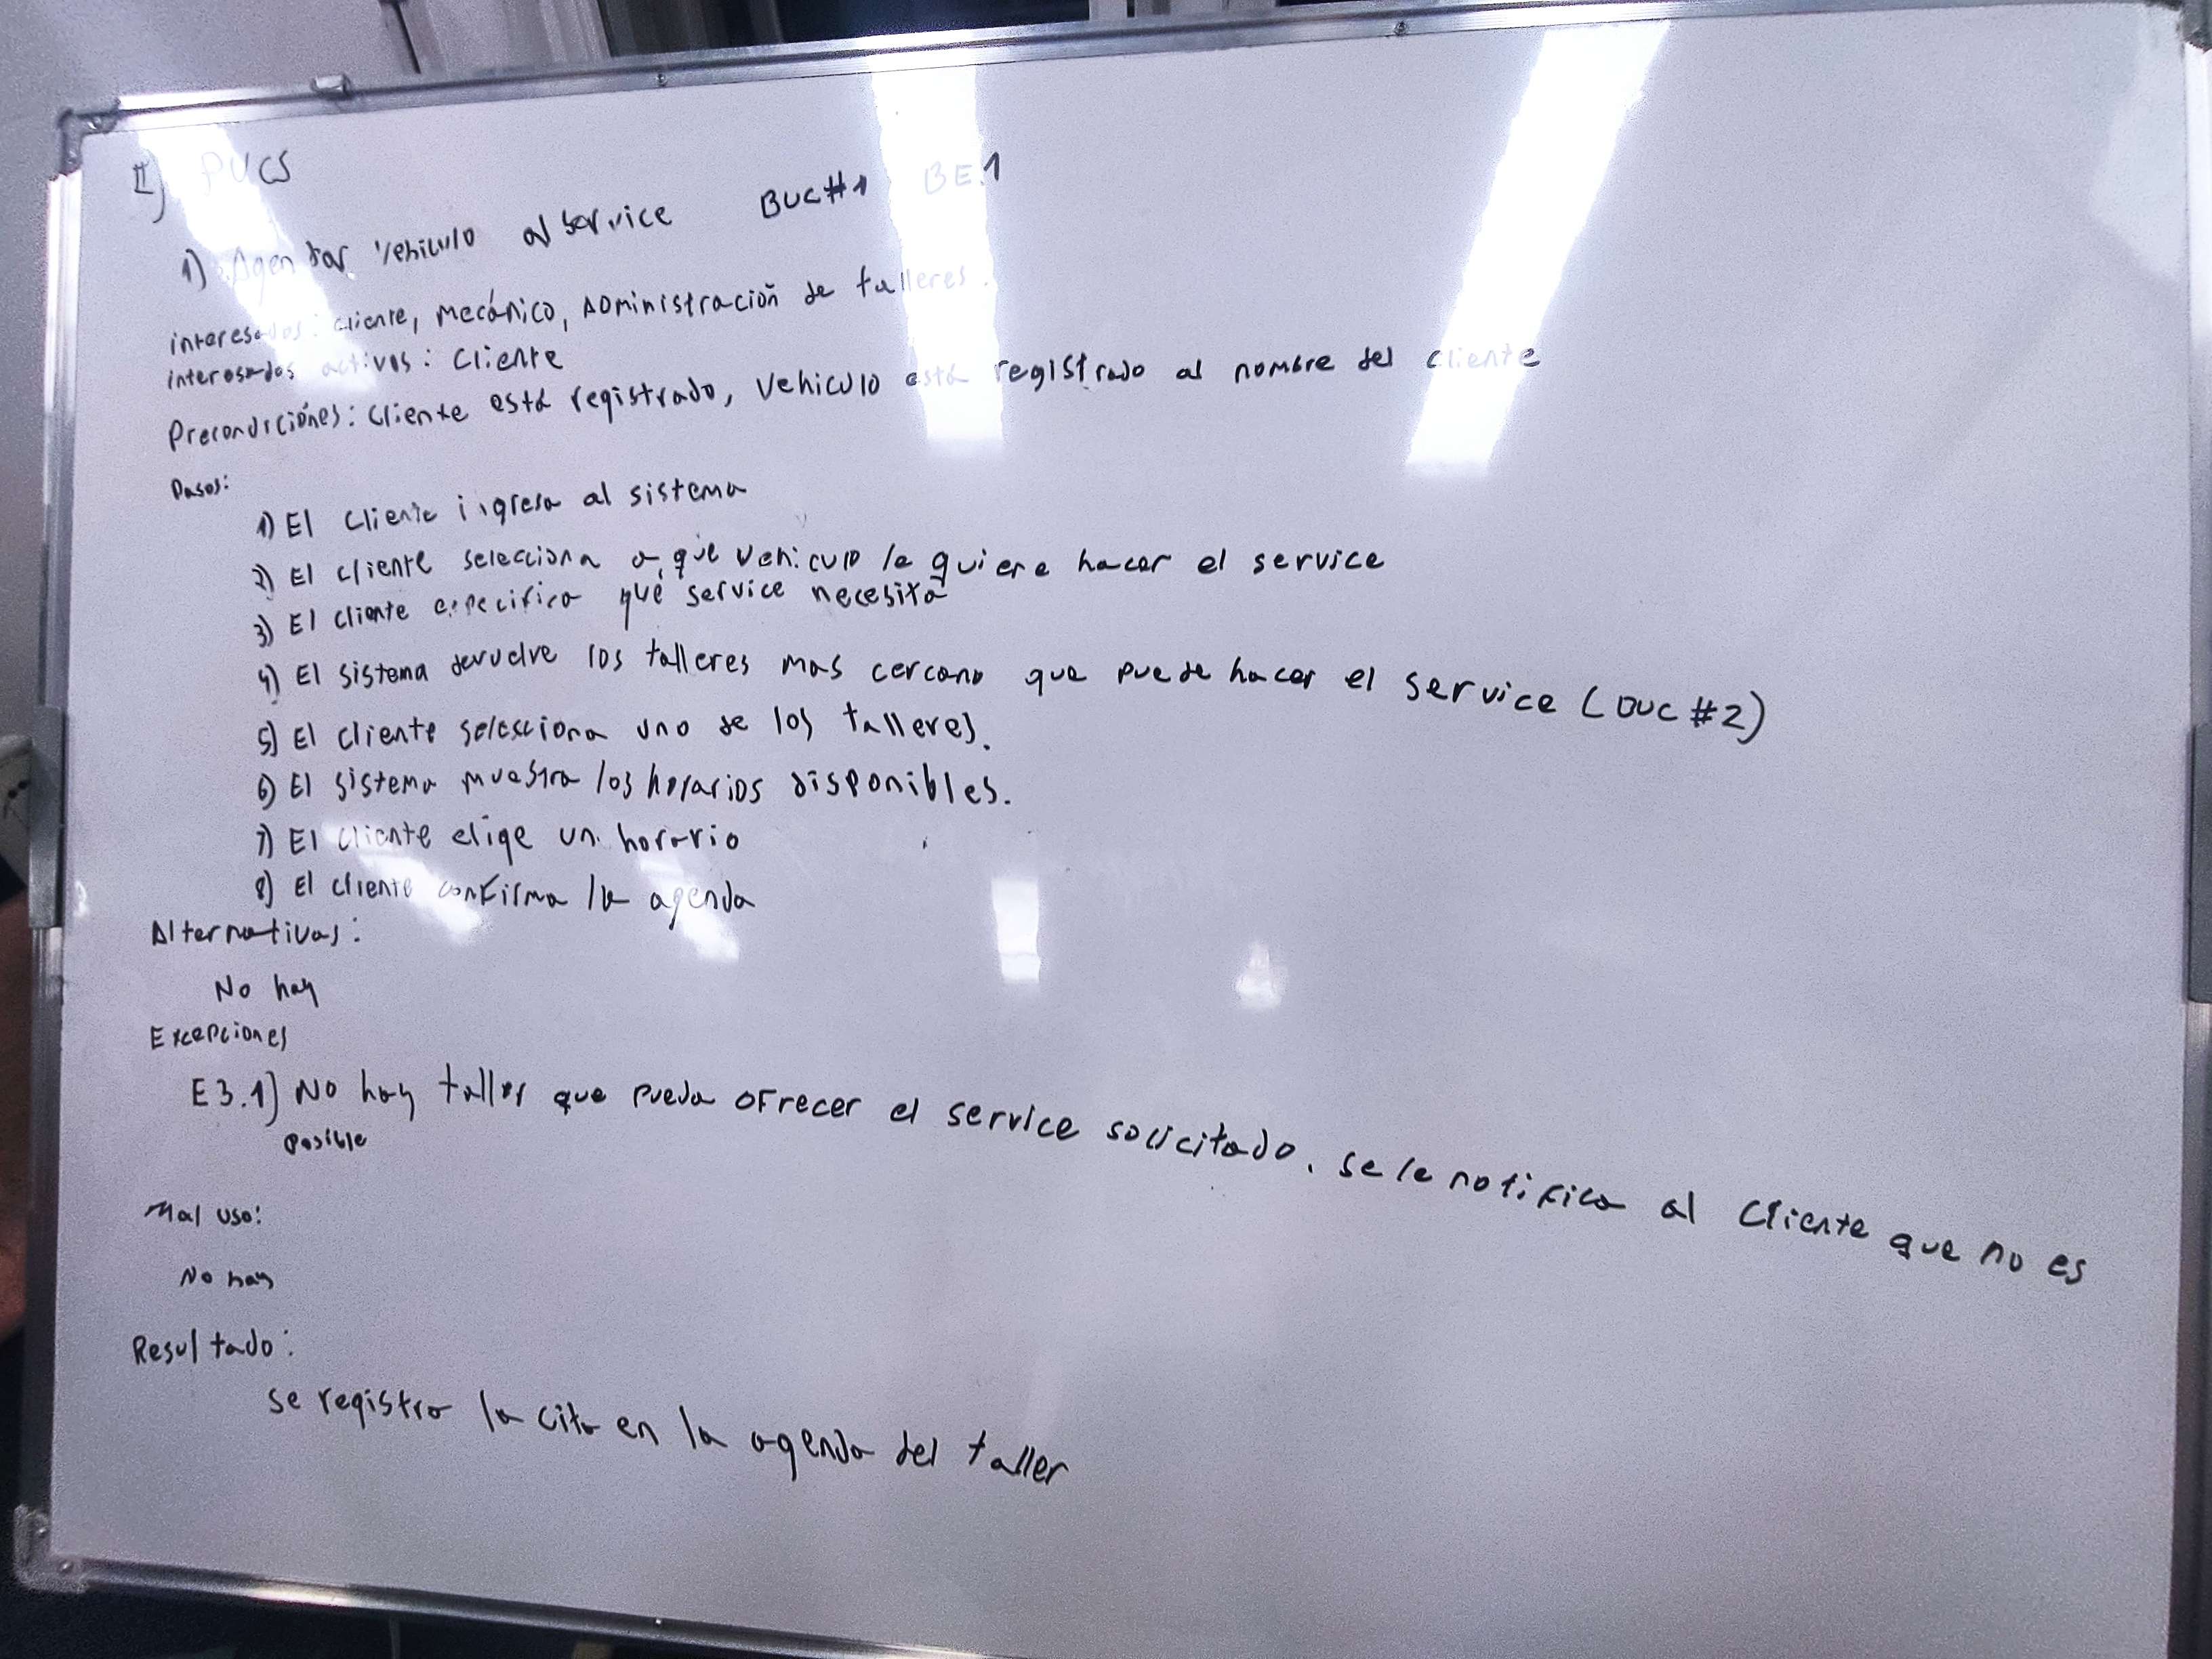 II) PUCS
1) Agendar vehiculo al service BUC#1 BE.1
interesados: cliente, mecánico, administración de talleres.
interesados activos: cliente
Precondiciónes: cliente está registrado, vehiculo está registrado al nombre del cliente
Pasos:
1) El cliente ingresa al sistema
2) El cliente selecciona a que vehiculo le quiere hacer el service
3) El cliente especifica qué service necesita
4) El sistema devuelve los talleres mas cercano que puede hacer el service (BUC #2)
5) El cliente selecciona uno de los talleres.
6) El sistema muestra los horarios disponibles.
7) El cliente elige un horario
8) El cliente confirma la agenda
Alternativas:
No hay
Excepciones
E3.1) No hay taller que pueda ofrecer el service solicitado. se le notifica al cliente que no es
posible
Mal uso:
No hay
Resultado:
se registra la cita en la agenda del taller